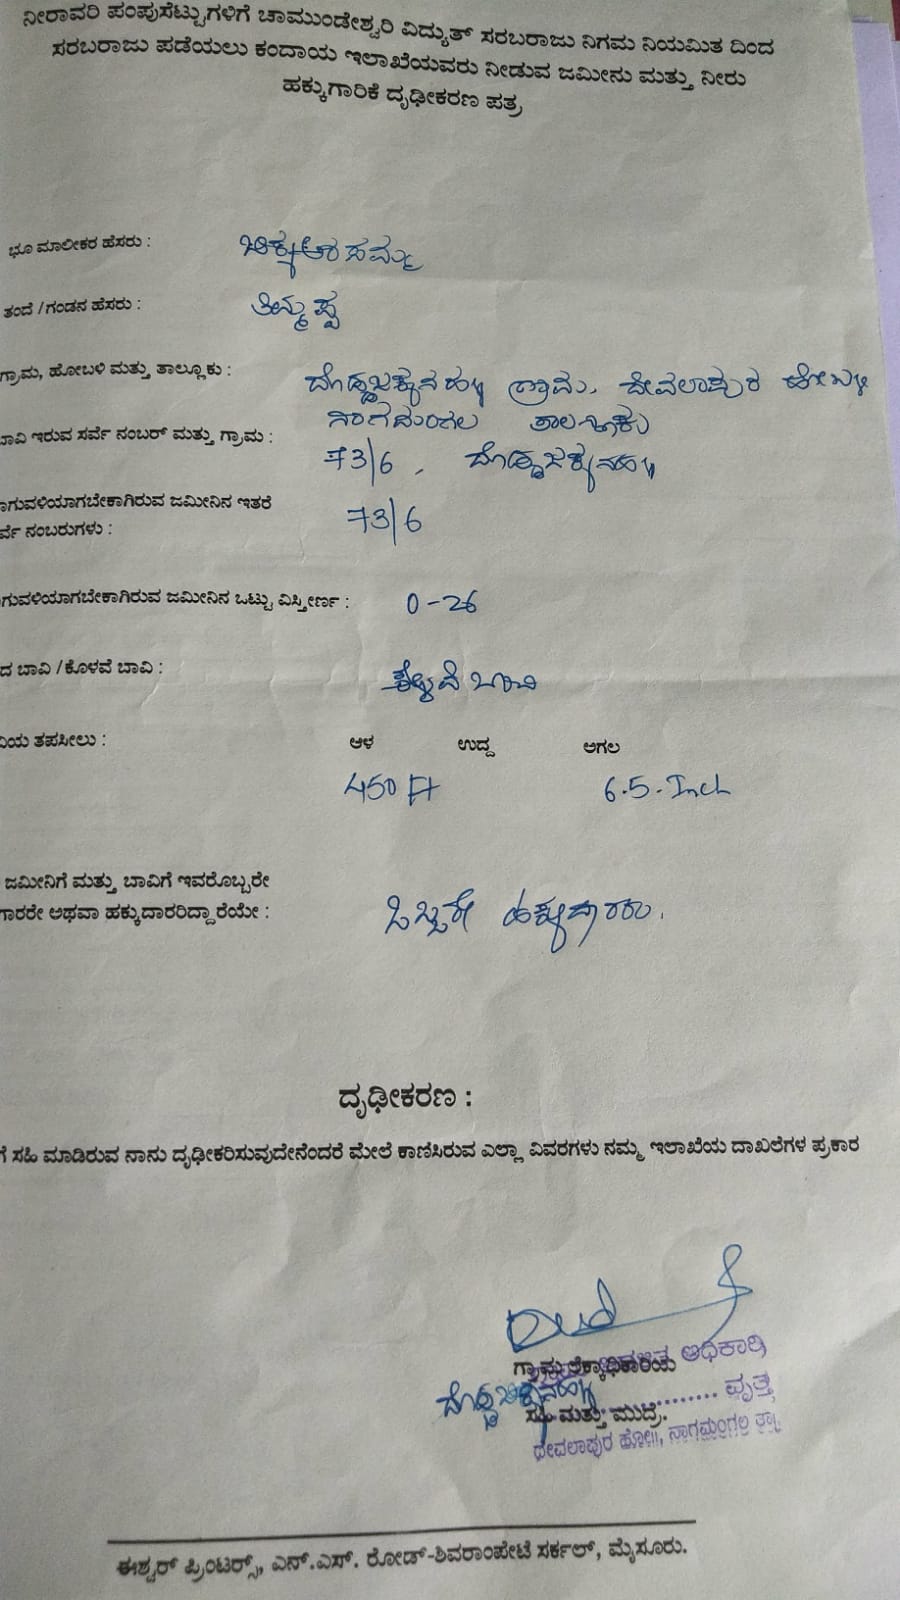 ನೀರಾವರಿ ಪಂಪುಸೆಟ್ಟುಗಳಿಗೆ ಚಾಮುಂಡೇಶ್ವರಿ ವಿದ್ಯುತ್ ಸರಬರಾಜು ನಿಗಮ ನಿಯಮಿತ ದಿಂದ
ಸರಬರಾಜು ಪಡೆಯಲು ಕಂದಾಯ ಇಲಾಖೆಯವರು ನೀಡುವ ಜಮೀನು ಮತ್ತು ನೀರು
ಹಕ್ಕುಗಾರಿಕೆ ದೃಢೀಕರಣ ಪತ್ರ
ಭೂ ಮಾಲೀಕರ ಹೆಸರು :
ತಂದೆ / ಗಂಡನ ಹೆಸರು : ತಿಮ್ಮಪ್ಪ
ಗ್ರಾಮ, ಹೋಬಳಿ ಮತ್ತು ತಾಲ್ಲೂಕು : ಗ್ರಾಮ. ದೇವಲಾಪುರ ಹೋಬಳಿ
ನಾಗಮಂಗಲ ತಾಲ್ಲೂಕು
ಬಾವಿ ಇರುವ ಸರ್ವೆ ನಂಬರ್ ಮತ್ತು ಗ್ರಾಮ : 73/6 ,
ಾಗುವಳಿಯಾಗಬೇಕಾಗಿರುವ ಜಮೀನಿನ ಇತರೆ
ರ್ವೆ ನಂಬರುಗಳು : 73/6
ಗುವಳಿಯಾಗಬೇಕಾಗಿರುವ ಜಮೀನಿನ ಒಟ್ಟು ವಿಸ್ತೀರ್ಣ : 0-26
ದ ಬಾವಿ / ಕೊಳವೆ ಬಾವಿ : ಕೊಳವೆ ಬಾವಿ
ಯ ತಪಸೀಲು : ಆಳ ಉದ್ದ ಅಗಲ
450 Ft 6.5. Inch
ಜಮೀನಿಗೆ ಮತ್ತು ಬಾವಿಗೆ ಇವರೊಬ್ಬರೇ
ಗಾರರೇ ಅಥವಾ ಹಕ್ಕುದಾರರಿದ್ದಾರೆಯೇ : ಒಬ್ಬರೇ ಹಕ್ಕುದಾರರು.
ದೃಢೀಕರಣ :
ಗೆ ಸಹಿ ಮಾಡಿರುವ ನಾನು ದೃಢೀಕರಿಸುವುದೇನೆಂದರೆ ಮೇಲೆ ಕಾಣಿಸಿರುವ ಎಲ್ಲಾ ವಿವರಗಳು ನಮ್ಮ ಇಲಾಖೆಯ ದಾಖಲೆಗಳ ಪ್ರಕಾರ
ಗ್ರಾಮಲೆಕ್ಕಾಧಿಕಾರಿಯ ಅಧಿಕಾರಿ
......... ವೃತ್ತ
ಸಹಿ ಮತ್ತು ಮುದ್ರೆ.
ದೇವಲಾಪುರ ಹೋ||, ನಾಗಮಂಗಲ ತಾ.
ಈಶ್ವರ್ ಪ್ರಿಂಟರ್ಸ್, ಎನ್.ಎಸ್. ರೋಡ್-ಶಿವರಾಂಪೇಟೆ ಸರ್ಕಲ್, ಮೈಸೂರು.